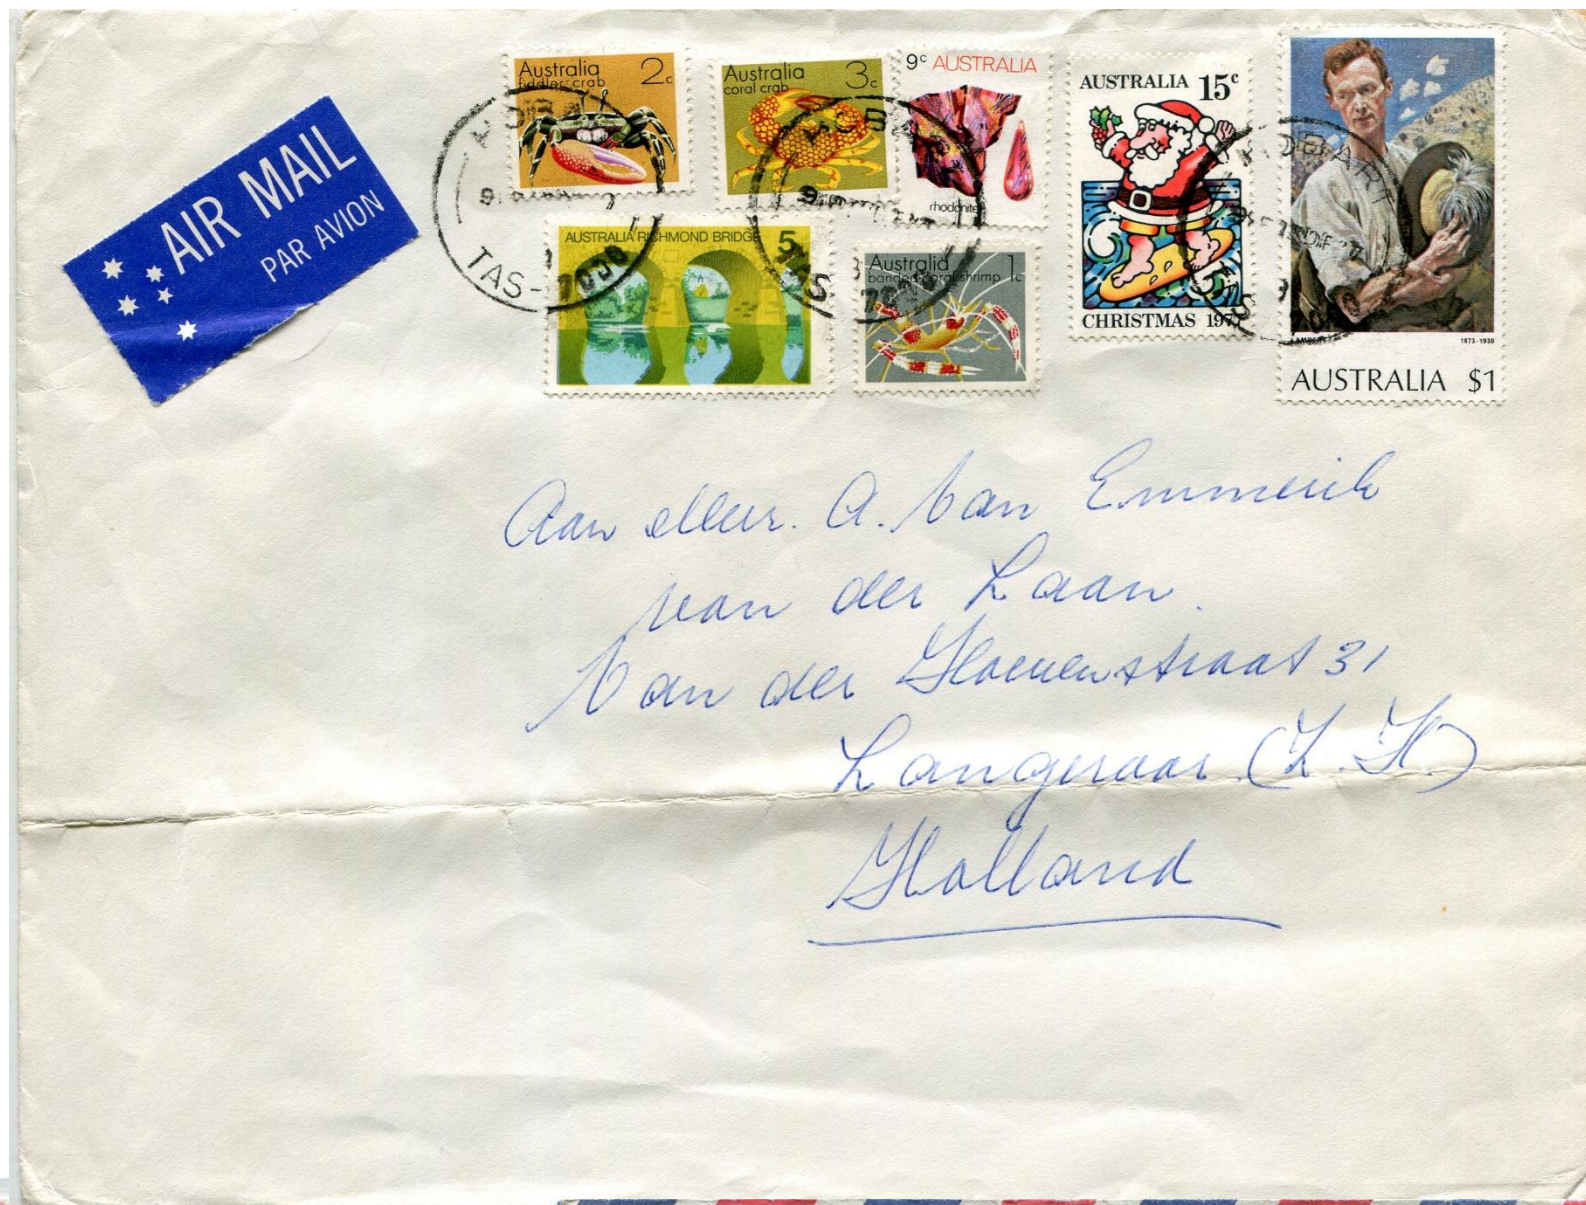 AIR MAIL
PAR AVION
Australia 2c
fiddler crab
Australia 3c
coral crab
9c AUSTRALIA
rhodonite
AUSTRALIA 15c
CHRISTMAS 1977
1873-1930
AUSTRALIA $1
AUSTRALIA RICHMOND BRIDGE 5c
Australia 1c
banded coral shrimp
HOBART
TAS-7000
Aan Mevr. A. Van Emmerik
van der Laan
Van der Hoevenstraat 31
Langeraar (Z.H.)
Holland